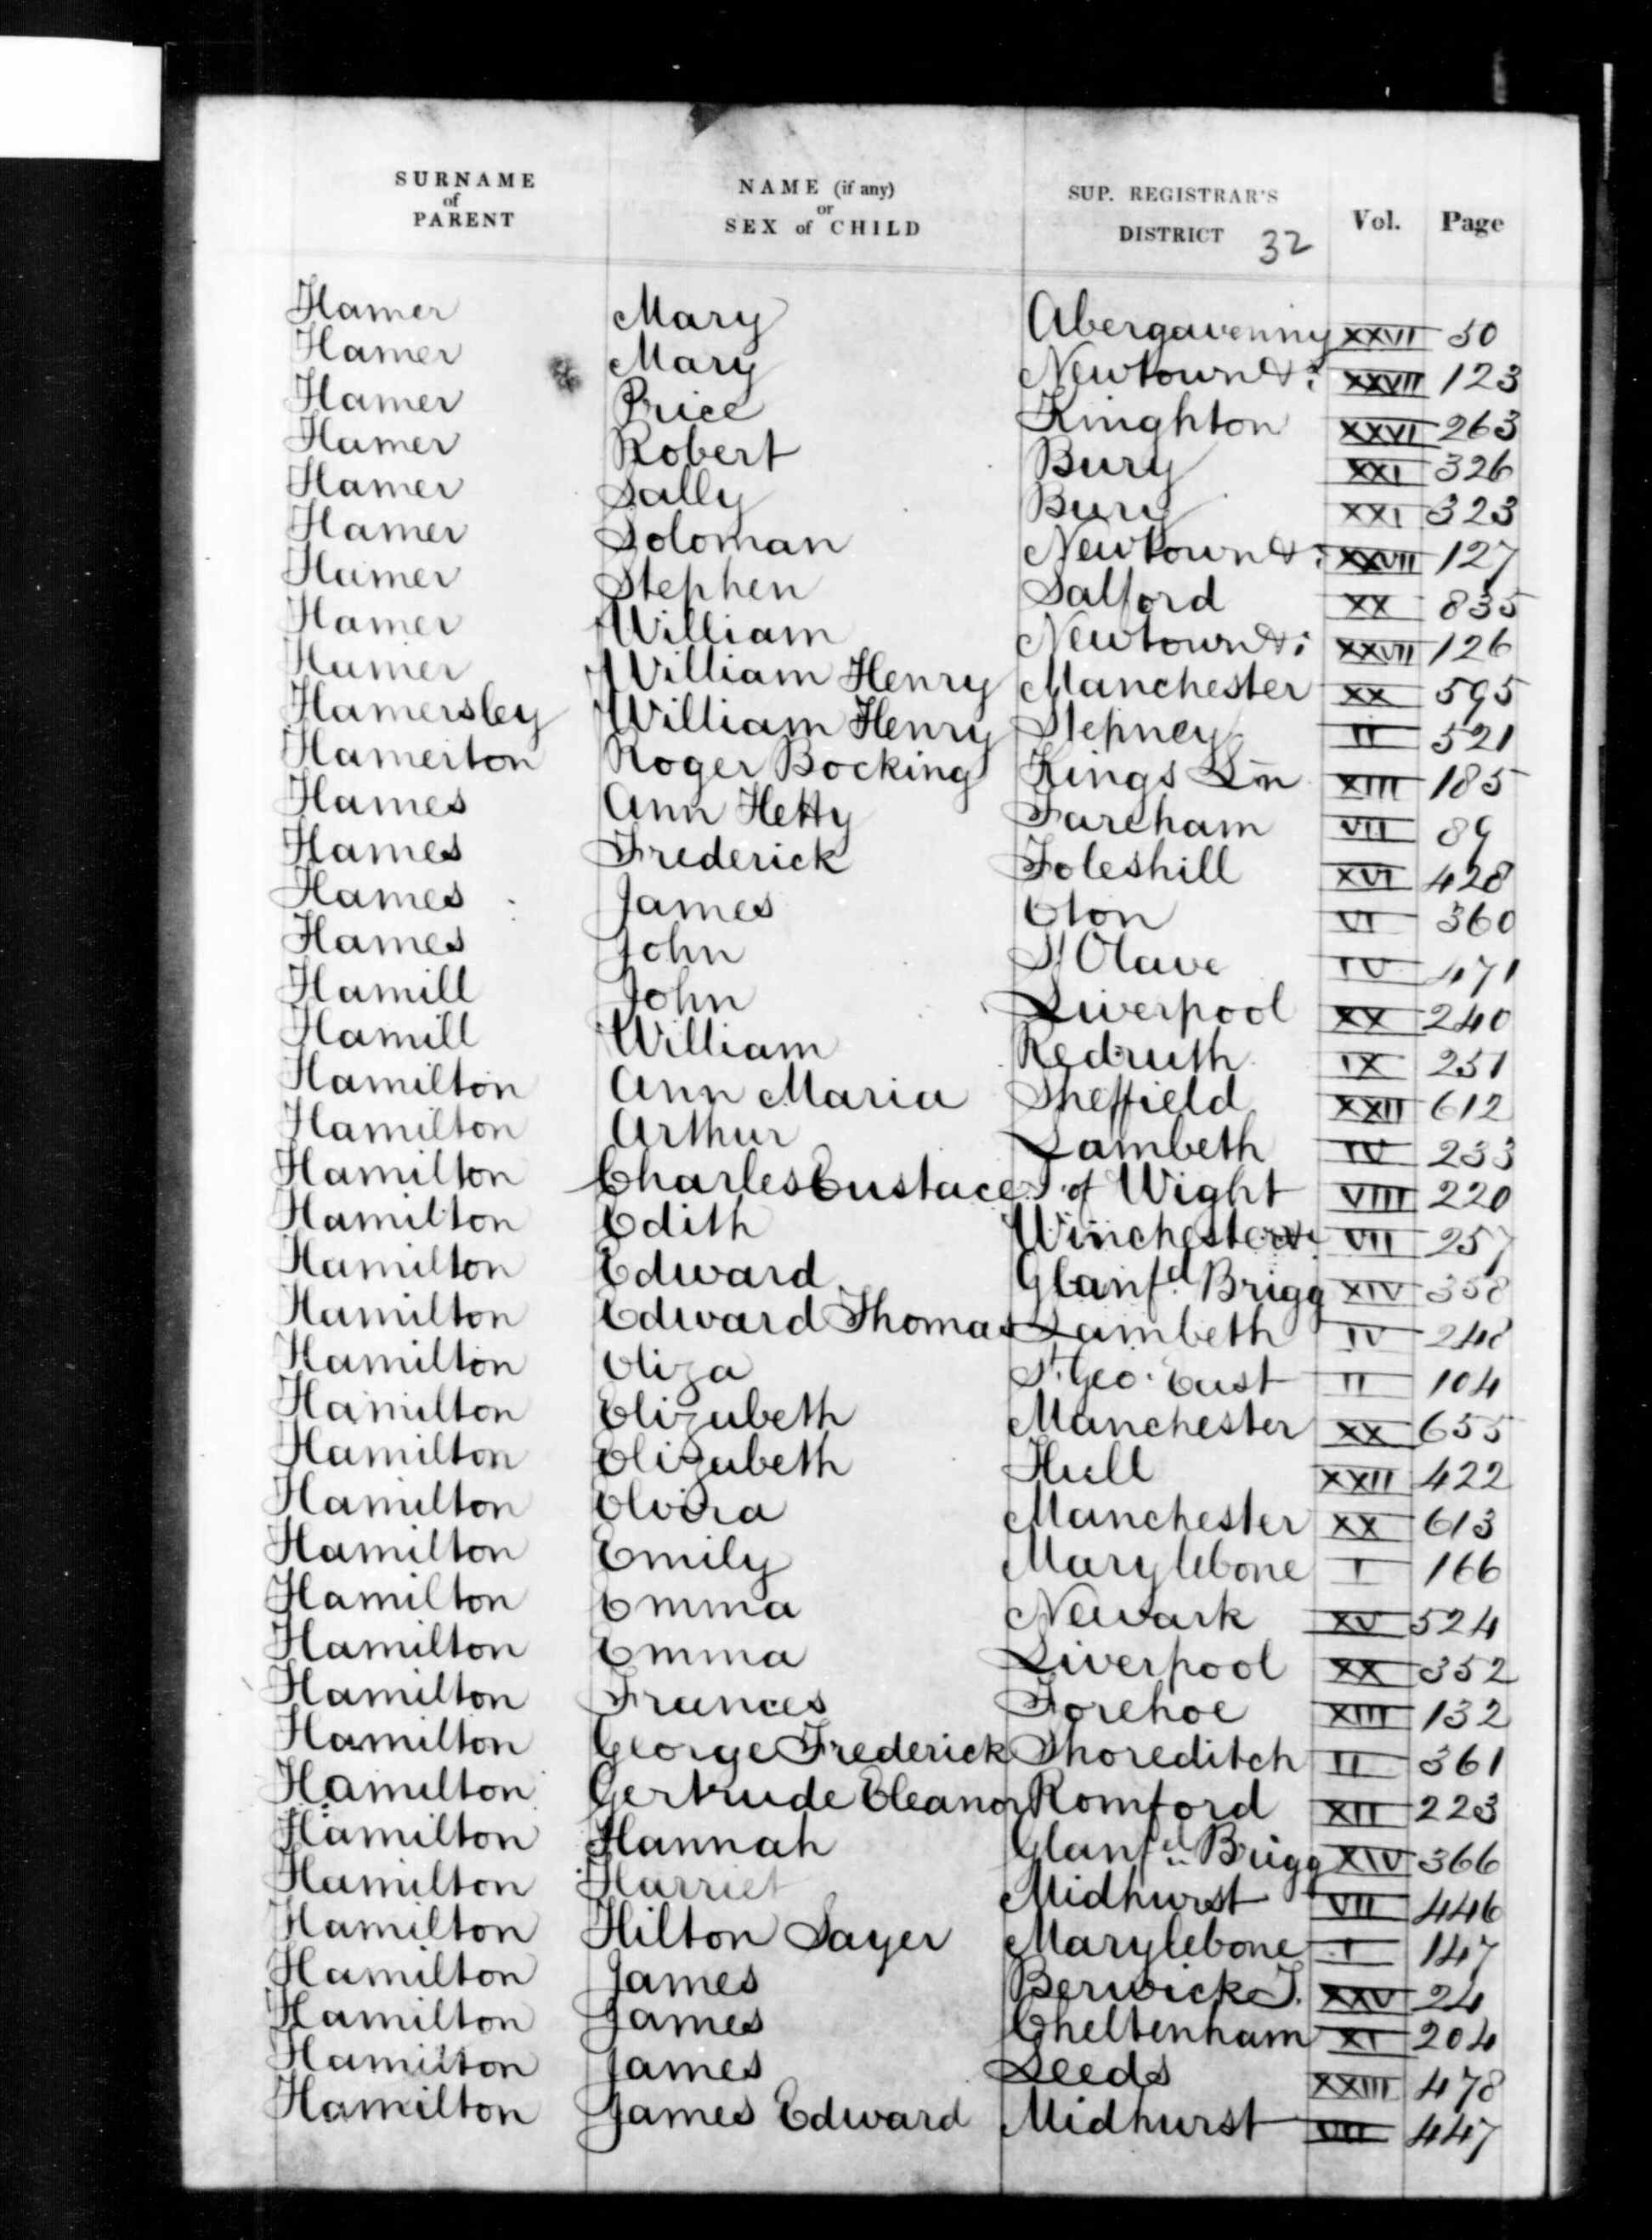 SURNAME of PARENT NAME (if any) or SEX of CHILD SUP. REGISTRAR'S DISTRICT 32 Vol. Page
Hamer Mary Abergavenny XXVI 50
Hamer Mary Newtown &c XXVII 123
Hamer Price Knighton XXVI 263
Hamer Robert Bury XXI 326
Hamer Sally Bury XXI 323
Hamer Soloman Newtown &c XXVII 127
Hamer Stephen Salford XX 835
Hamer William Newtown &c XXVII 126
Hamer William Henry Manchester XX 595
Hamersley William Henry Stepney II 521
Hamerton Roger Bocking Kings Lyn XIII 185
Hames Ann Hetty Fareham VII 89
Hames Frederick Foleshill XVI 428
Hames James Eton VI 360
Hames John St Olave IV 471
Hamill John Liverpool XX 240
Hamill William Redruth IX 251
Hamilton Ann Maria Sheffield XXII 612
Hamilton Arthur Lambeth IV 233
Hamilton Charles Eustace I. of Wight VIII 220
Hamilton Edith Winchester &c VII 257
Hamilton Edward Glanfd. Brigg XIV 358
Hamilton Edward Thomas Lambeth IV 248
Hamilton Eliza St. Geo. East II 104
Hamilton Elizabeth Manchester XX 655
Hamilton Elizabeth Hull XXII 422
Hamilton Elvira Manchester XX 613
Hamilton Emily Marylebone I 166
Hamilton Emma Newark XV 524
Hamilton Emma Liverpool XX 352
Hamilton Frances Forehoe XIII 132
Hamilton George Frederick Shoreditch II 361
Hamilton Gertrude Eleanor Romford XII 223
Hamilton Hannah Glanfd. Brigg XIV 366
Hamilton Harriet Midhurst VII 446
Hamilton Hilton Sayer Marylebone I 147
Hamilton James Berwick T. XXV 24
Hamilton James Cheltenham XI 204
Hamilton James Leeds XXIII 478
Hamilton James Edward Midhurst VII 447